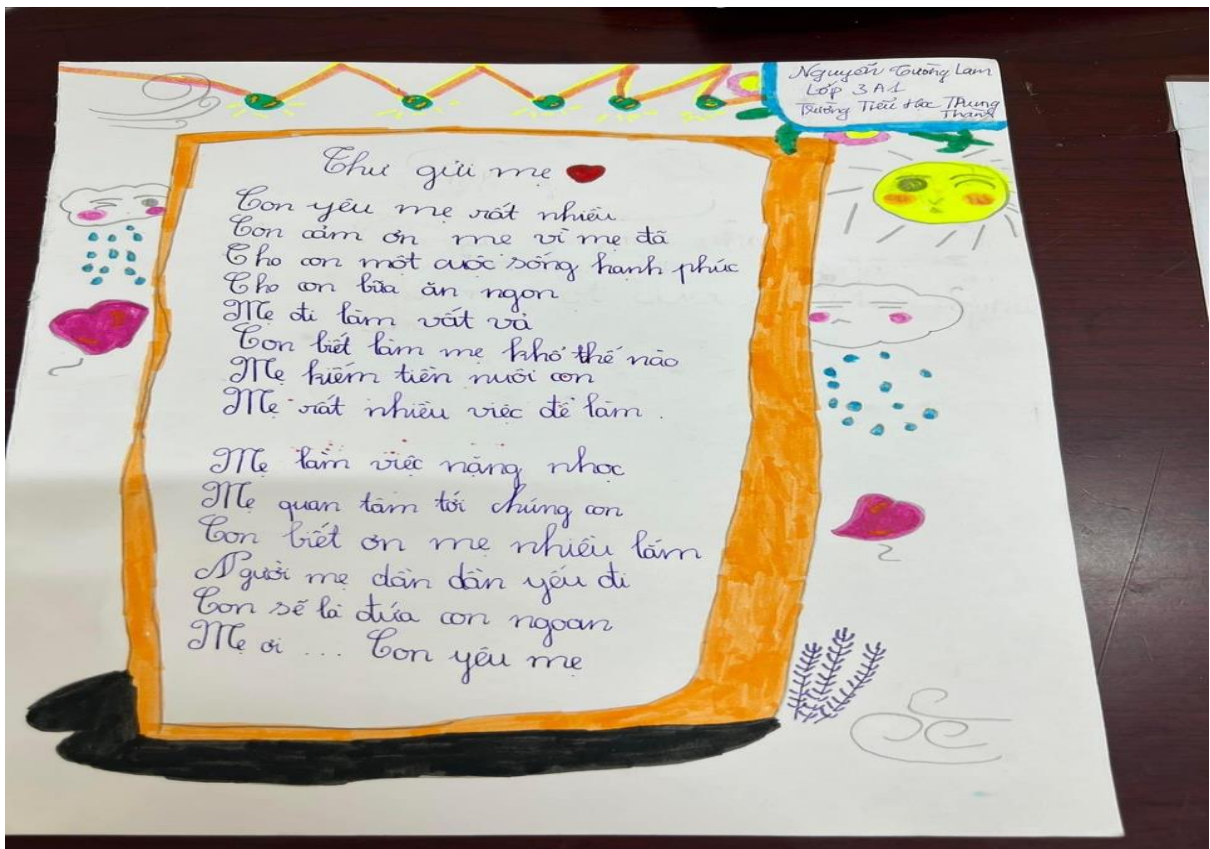 Nguyễn Tường Lam
Lớp 3A1
Trường Tiểu học Trung Thành
Thư gửi mẹ
Con yêu mẹ rất nhiều
Con cảm ơn mẹ vì mẹ đã
Cho con một cuộc sống hạnh phúc
Cho con bữa ăn ngon
Mẹ đi làm vất vả
Con biết làm mẹ khổ thế nào
Mẹ kiếm tiền nuôi con
Mẹ rất nhiều việc để làm.
Mẹ làm việc nặng nhọc
Mẹ quan tâm tới chúng con
Con biết ơn mẹ nhiều lắm
Người mẹ dần dần yếu đi
Con sẽ là đứa con ngoan
Mẹ ơi ... Con yêu mẹ